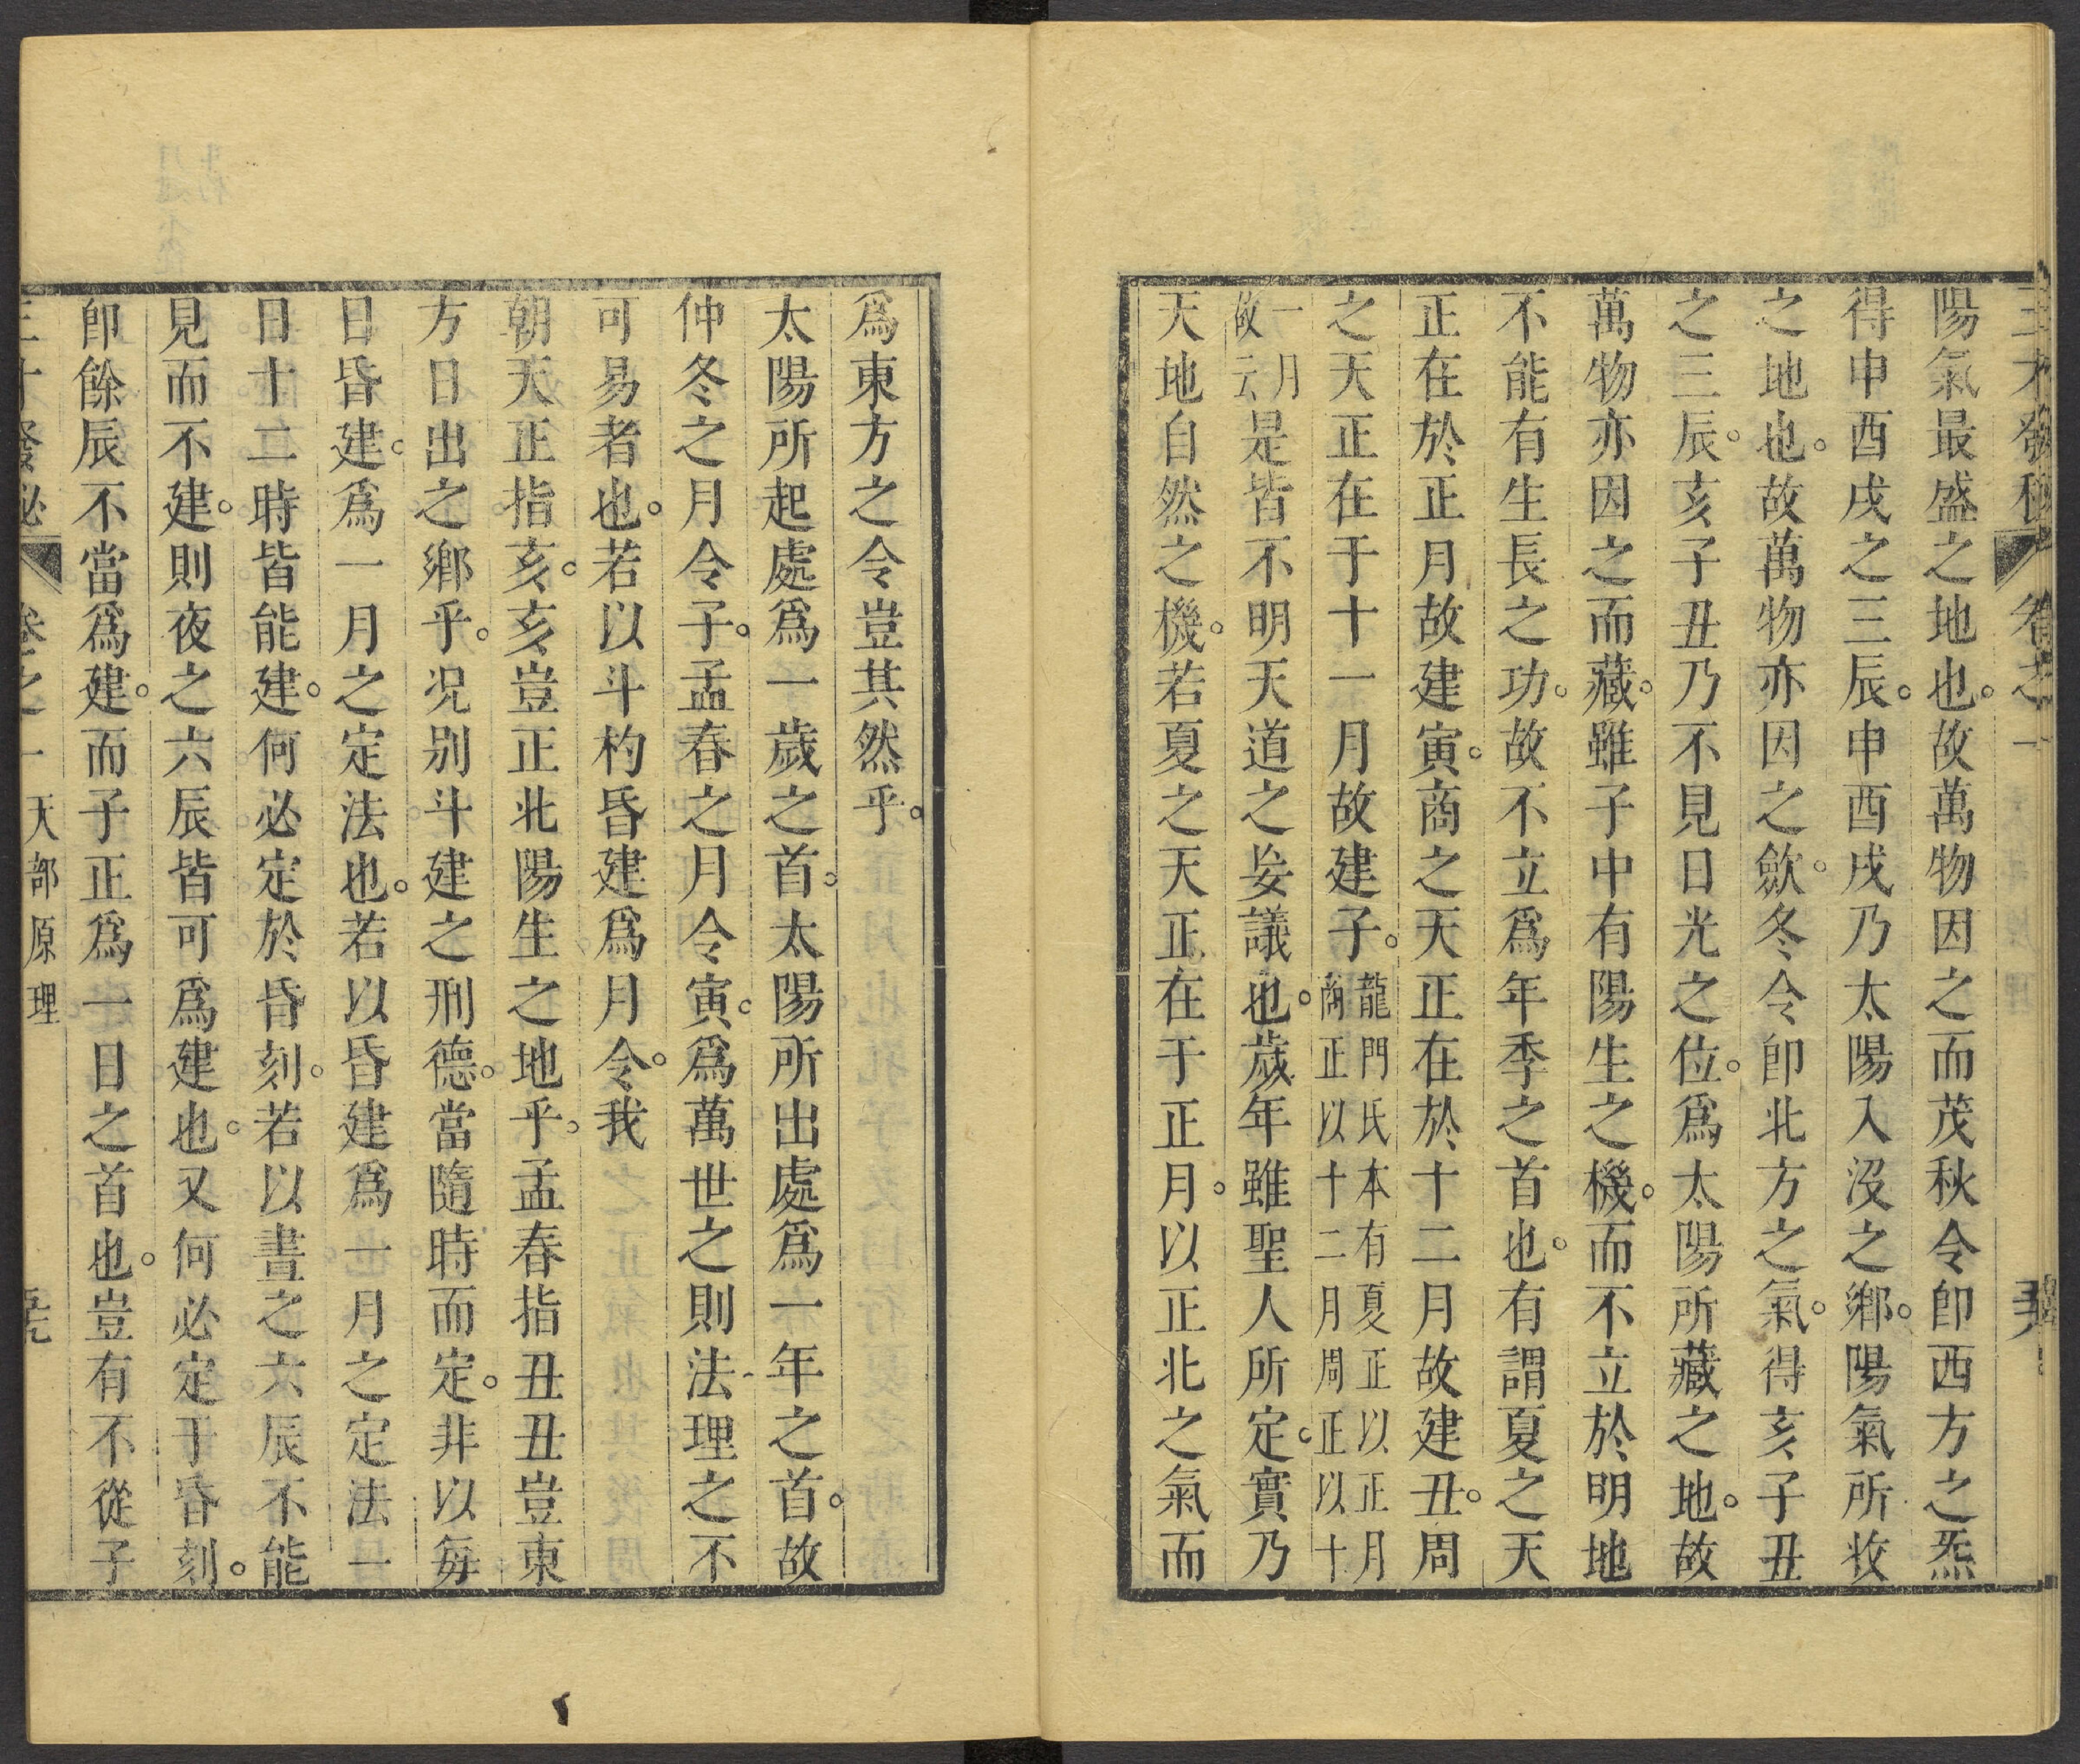 三才發秘 卷之一
陽氣最盛之地也。故萬物因之而茂秋令卽西方之炁
得申酉戌之三辰。申酉戌乃太陽入沒之鄉。陽氣所收
之地也。故萬物亦因之歛。冬令卽北方之氣。得亥子丑
之三辰。亥子丑乃不見日光之位。爲太陽所藏之地。故
萬物亦因之而藏。雖子中有陽生之機。而不立於明地
不能有生長之功。故不立爲年季之首也。有謂夏之天
正在於正月故建寅。商之天正在於十二月故建丑。周
之天正在于十一月故建子。龍門氏本有夏正以正月商正以十二月周正以十
一月故云是皆不明天道之妄議也。歲年雖聖人所定。實乃
天地自然之機。若夏之天正在于正月。以正北之氣而
爲東方之令豈其然乎。
太陽所起處爲一歲之首。太陽所出處爲一年之首。故
仲冬之月令子。孟春之月令寅。爲萬世之則法理之不
可易者也。若以斗杓昏建爲月令。我
朝天正指亥。亥豈正北陽生之地乎。孟春指丑丑豈東
方日出之鄉乎。况别斗建之刑德。當隨時而定。非以每
日昏建。爲一月之定法也。若以昏建爲一月之定法一
日十二時皆能建。何必定於昏刻。若以晝之六辰不能
見而不建。則夜之六辰皆可爲建也。又何必定于昏刻。
卽餘辰不當爲建。而子正爲一日之首也。豈有不從子
三才發秘 卷之一 天部原理